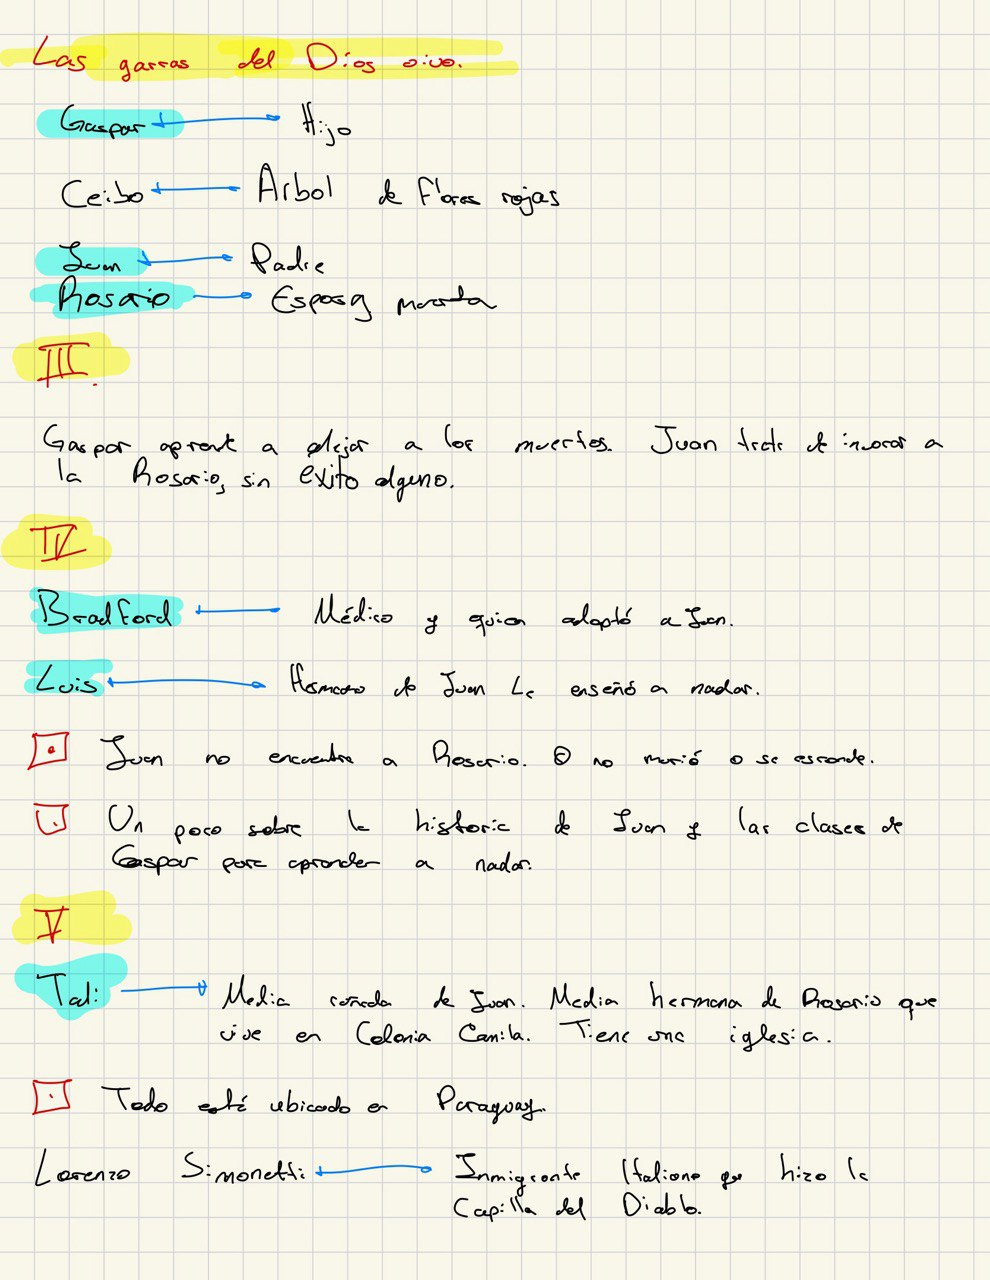 Las garras del Dios vivo.
Gaspar Hijo
Ceibo Arbol de flores rojas
Juan Padre
Rosario Esposa muerta
III.
Gaspar aprende a alejar a los muertos. Juan trata de invocar a
la Rosario, sin exito alguno.
IV
Bradford Médico y quien adoptó a Juan.
Luis Hermano de Juan Le enseñó a nadar.
Juan no encuentra a Rosario. O no murió o se esconde.
Un poco sobre la historia de Juan y las clases de
Gaspar para aprender a nadar.
V
Tali Media cuñada de Juan. Media hermana de Rosario que
vive en Colonia Camila. Tiene una iglesia.
Todo está ubicado en Paraguay.
Lorenzo Simonetti Inmigrante Italiano que hizo la
Capilla del Diablo.